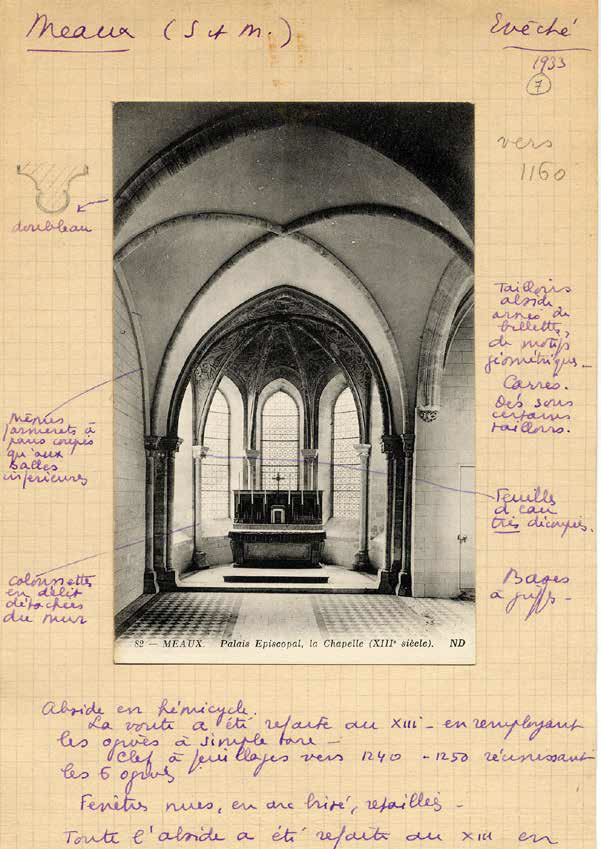 Meaux (S et M.)
Evêché
1933
7
vers
1160
doubleau
Tailloirs
abside
ornés de
billettes,
de motifs
géométriques.
Carrés.
Dés sous
certains
tailloirs.
Mêmes
formerets à
pans coupés
qu'aux
salles
inférieures
Feuilles
d'eau
très découpées.
Colonnettes
en délit
détachées
du mur
Bases
à griffes
82 — MEAUX. Palais Episcopal, la Chapelle (XIIIe siècle). ND
Abside en hémicycle.
La voute a été refaite au XIII - en remployant
les ogives à simple tore -
Clef à feuillages vers 1240 - 1250 réunissant
les 6 ogives
Fenêtres nues, en arc brisé, retaillées -
Toute l'abside a été refaite au XIII en